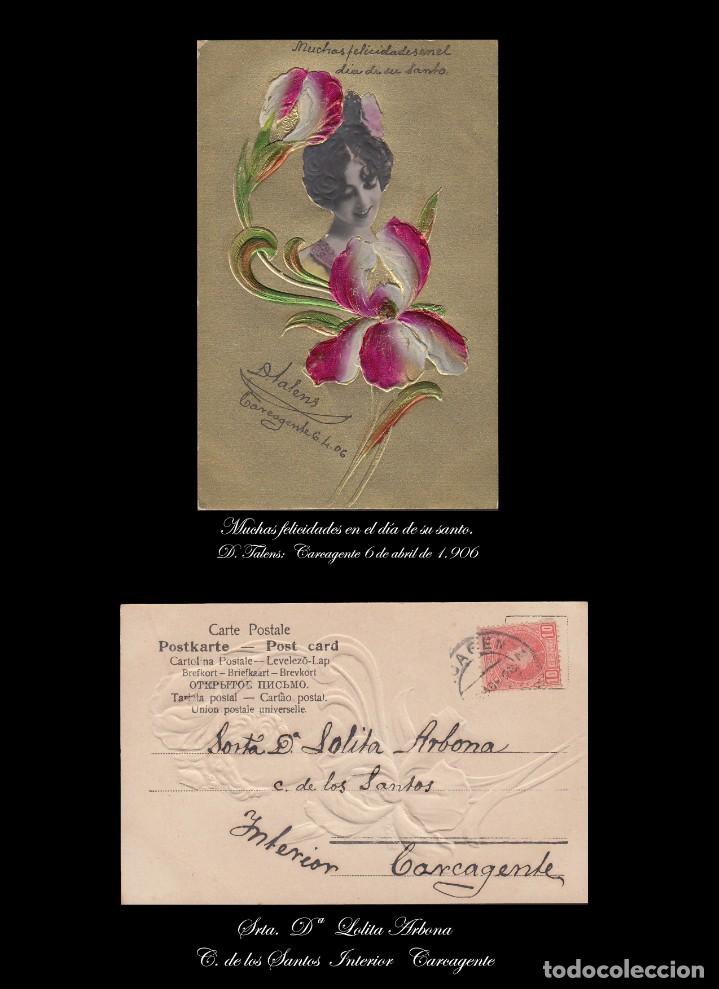 Muchas felicidades en el
dia de su Santo.
D. Talens
Carcagente 6.4.06
Muchas felicidades en el día de su santo.
D. Talens: Carcagente 6 de abril de 1.906
Carte Postale
Postkarte — Post card
Cartolina Postale — Levelező-Lap
Brefkort — Briefkaart — Brevkort
ОТКРЫТОЕ ПИСЬМО.
Tarjeta postal — Cartão postal.
Union postale universelle.
CAGEN
10
10
Sorta Dª Lolita Arbona
c. de los Santos
Interior Carcagente
Srta. Dª Lolita Arbona
C. de los Santos Interior Carcagente
todocoleccion